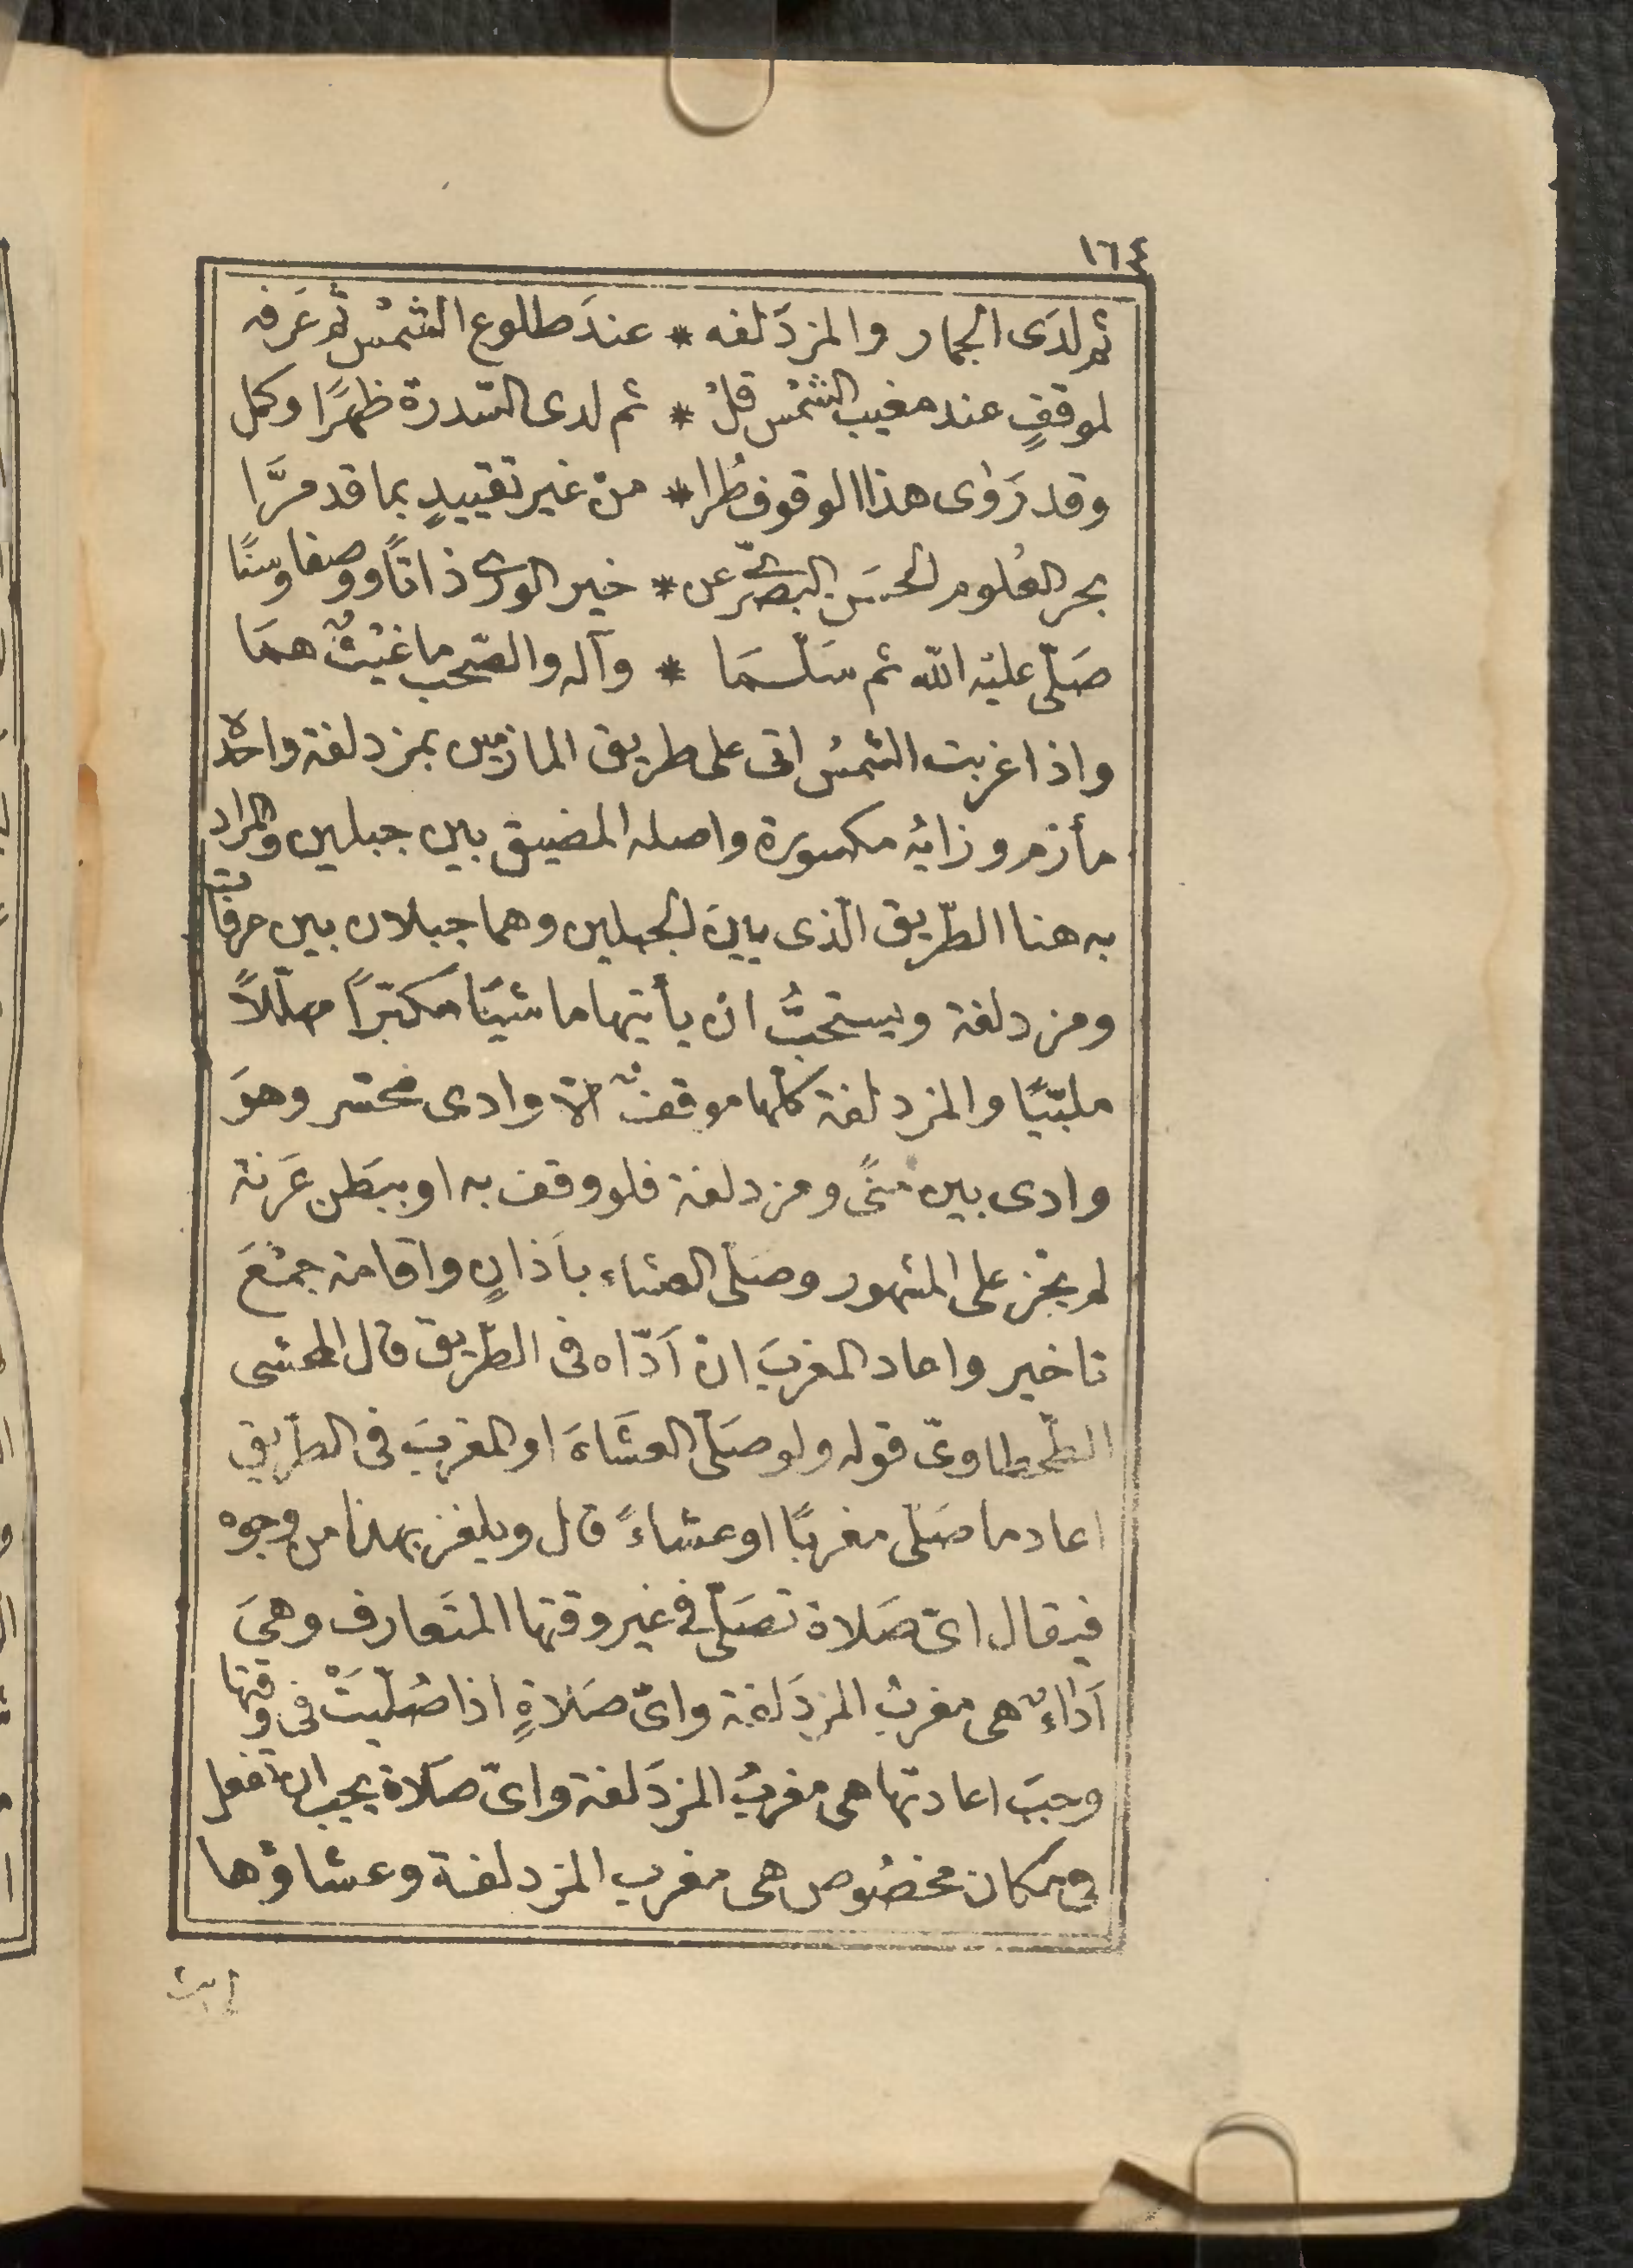 ١٦٤
ثم لدَى الجمار والمزدَلفه * عندَ طلوع الشمْس ثم عَرفه
لموقفٍ عند مغيب الشمْس قلْ * ثم لدى السّدرة ظهرًا وكمل
وقد رَوٰى هذا الوقوف طُرا * منْ غير تقييدٍ بما قد مرَّا
بحر العُلوم الحسَن البصرىّ عن * خير الورى ذاتًا ووصفا وسنًا
صَلّى عليْه الله ثم سَلّسمَا * وآله والصّحب ما غيْثٌ همَا
واذا غربت الشمسُ اتى على طريق المازمين بمزدلفة واحدُه
مأزم وزايُه مكسورة واصله المضيق بين جبلين والمراد
به هنا الطّريق الّذى بينَ الجبلين وهما جبلان بين عرفات
ومزدلفة ويستحبُّ انْ يأتيها ماشيًا مكبّرًا مهلّلاً
ملبّيًا والمزدلفة كلّها موقفٌ الّا وادى محسّر وهوَ
وادى بين منًى ومزدلفة فلو وقف به او ببَطن عَرنة
لم يجز على المشهور وصَلّى العشاء بأَذانٍ واقامة جمْعَ
تاخير واعاد المغربَ انْ اَدّاه فى الطّريق قال المحشى
الطّحطاوىّ قوله ولو صَلّى العشَاءَ او المغربَ فى الطّريق
اعاد ما صَلّى مغربًا او عشاءً قال ويلغز بهذا من وجوه
فيقال اىّ صَلاة تصَلّى فى غير وقتها المتَعارف وهىَ
اَدَاءٌ هى مغربُ المزدَلفة واىّ صَلاةٍ اذا صُلّيَتْ فى وقتها
وجبَ اعادتها هى مغربُ المزدَلفة واىّ صَلاة يجب انْ تفعل
فى مكان مخصُوص هى مغرب المزدلفة وعشاؤها